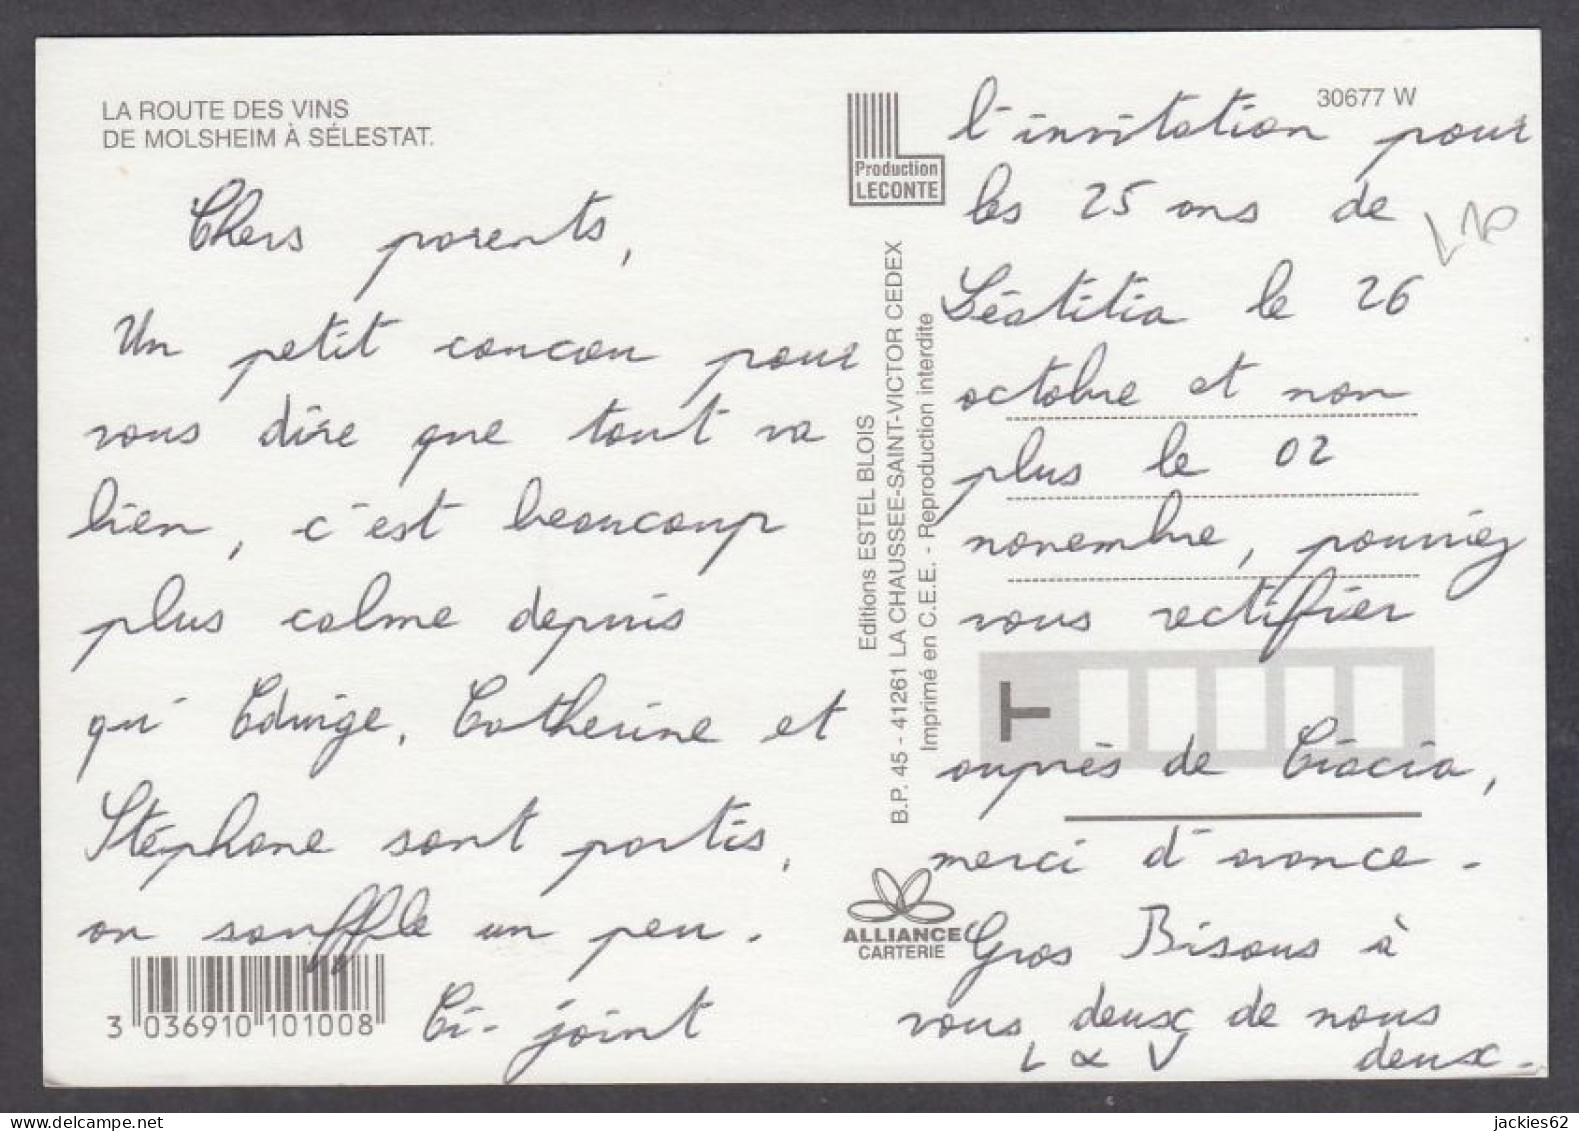 LA ROUTE DES VINS
DE MOLSHEIM À SÉLESTAT.
Chers parents,
Un petit coucou pour
vous dire que tout va
bien, c'est beaucoup
plus calme depuis
qu' Edwige, Catherine et
Stéphane sont partis,
on souffle un peu.
Ci-joint
3 036910 101008
Production
LECONTE
Editions ESTEL BLOIS
B.P. 45 - 41261 LA CHAUSSEE-SAINT-VICTOR CEDEX
Imprimé en C.E.E. - Reproduction interdite
ALLIANCE
CARTERIE
30677 W
l'invitation pour
les 25 ans de
Léatitia le 26
octobre et non
plus le 02
novembre, pourriez
vous rectifier
auprès de Ciacia,
merci d'avance.
Gros Bisous à
vous deux de nous
deux.
L & V
jackies62